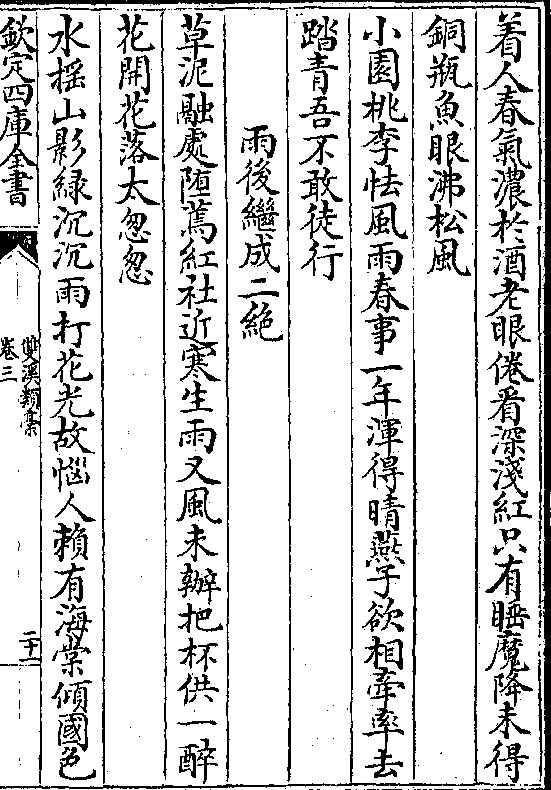 着人春氣濃於酒老眼倦看深淺紅只有睡魔降未得
銅瓶魚眼沸松風
小園桃李怯風雨春事一年渾得晴燕子欲相牽率去
踏青吾不敢徒行
雨後繼成二絶
草泥融處墮蔫紅社近寒生雨又風未辦把杯供一醉
花開花落太怱怱
水揺山影緑沉沉雨打花光故惱人賴有海棠傾國色
欽定四庫全書
雙溪類藁
卷三
二十一